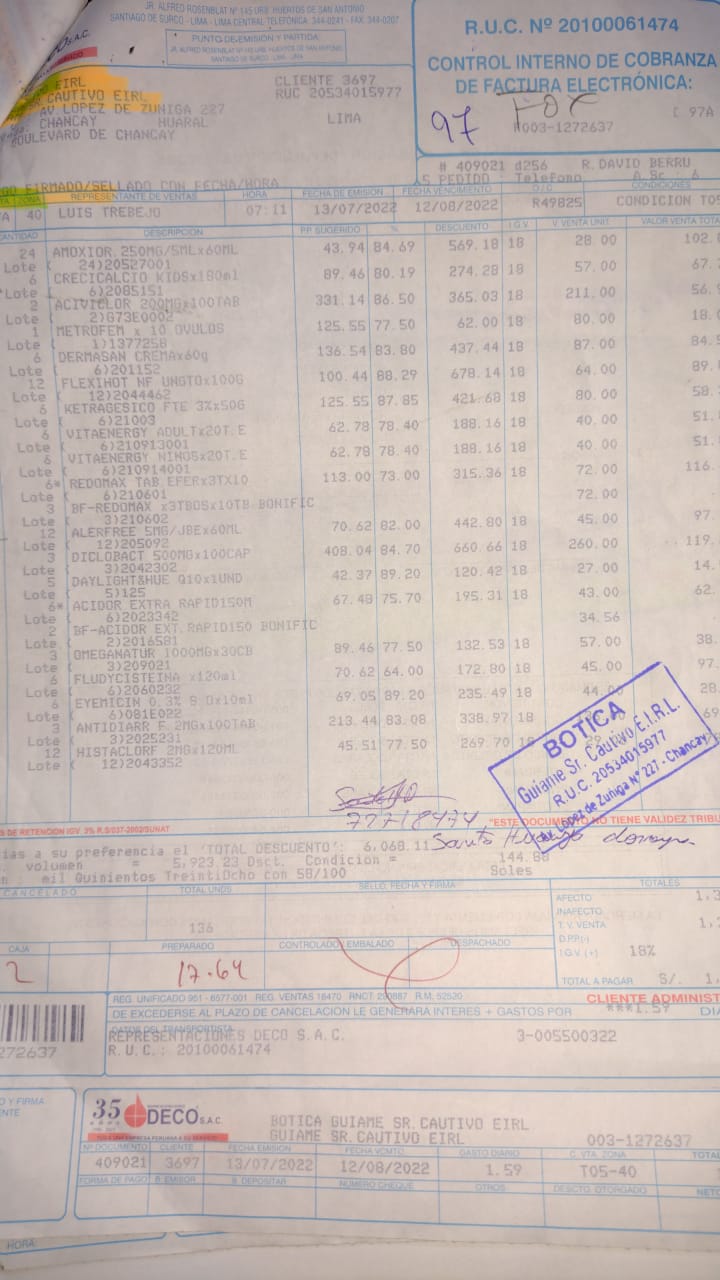 JR. ALFRED ROSENBLAT Nº 145 URB. HUERTOS DE SAN ANTONIO
SANTIAGO DE SURCO - LIMA - LIMA CENTRAL TELEFÓNICA: 344-0241 - FAX: 344-0207
PUNTO DE EMISIÓN Y PARTIDA:
JR. ALFREDO ROSENBLAT Nº 145 URB. HUERTOS DE SAN ANTONIO
SANTIAGO DE SURCO - LIMA - LIMA
S.A.C.
R.U.C. Nº 20100061474
CONTROL INTERNO DE COBRANZA
DE FACTURA ELECTRÓNICA:
97
#003-1272637
C 97A
EIRL
CAUTIVO EIRL
AV LOPEZ DE ZUÑIGA 227
CHANCAY HUARAL LIMA
BOULEVARD DE CHANCAY
CLIENTE 3697
RUC 20534015977
# 409021 d256 R.DAVID BERRU
PEDIDO Telefono
FIRMADO/SELLADO CON FECHA/HORA
ZONA REPRESENTANTE DE VENTAS HORA FECHA DE EMISION FECHA VENCIMIENTO O/C CONDICIONES
40 LUIS TREBEJO 07:11 13/07/2022 12/08/2022 R49825 CONDICION T05
CANTIDAD DESCRIPCION P.P. SUGERIDO % DESCUENTO I.G.V. V.VENTA UNIT. VALOR VENTA TOTAL
24 AMOXIOR 250MG/5MLx60ML 43.94 84.69 569.18 18 28.00 102.
Lote ( 24)20527001
6 CRECICALCIO KIDSx180ml 89.46 80.19 274.28 18 57.00 67.
Lote ( 6)2085151
2 ACIVICLOR 200MGx100TAB 331.14 86.50 365.03 18 211.00 56.
Lote ( 2)G73E0002
1 METROFEM x 10 OVULOS 125.55 77.50 62.00 18 80.00 18.
Lote ( 1)1377258
6 DERMASAN CREMAx60g 136.54 83.80 437.44 18 87.00 84.
Lote ( 6)201152
12 FLEXIHOT NF UNGTOx100G 100.44 88.29 678.14 18 64.00 89.
Lote ( 12)2044462
6 KETRAGESICO FTE 3%x50G 125.55 87.85 421.68 18 80.00 58.
Lote ( 6)21003
6 VITAENERGY ADULTx20T.E 62.78 78.40 188.16 18 40.00 51.
Lote ( 6)210913001
6 VITAENERGY NINOSx20T.E 62.78 78.40 188.16 18 40.00 51.
Lote ( 6)210914001
6* REDOMAX TAB EFERx3TX10 113.00 73.00 315.36 18 72.00 116.
Lote ( 6)210601
3 BF-REDOMAX x3TBOSx10TB BONIFIC 72.00
Lote ( 3)210602
12 ALERFREE 5MG/JBEx60ML 70.62 82.00 442.80 18 45.00 97.
Lote ( 12)205092
3 DICLOBACT 500MGx100CAP 408.04 84.70 660.66 18 260.00 119.
Lote ( 3)2042302
5 DAYLIGHT&HUE Q10x1UND 42.37 89.20 120.42 18 27.00 14.
Lote ( 5)125
6* ACIDOR EXTRA RAPID150M 67.48 75.70 195.31 18 43.00 62.
Lote ( 6)2023342
2 BF-ACIDOR EXT.RAPID150 BONIFIC 34.56
Lote ( 2)2016581
3 OMEGANATUR 1000MGx30CB 89.46 77.50 132.53 18 57.00 38.
Lote ( 3)209021
6 FLUDYCISTEINA x120ml 70.62 64.00 172.80 18 45.00 97.
Lote ( 6)2060232
6 EYEMICIN 0.3% S.Ox10ml 69.05 89.20 235.49 18 44.00 28.
Lote ( 6)081E022
3 ANTIDIARR F.2MGx100TAB 213.44 83.08 338.97 18 69
Lote ( 3)2025231
12 HISTACLORF 2MGx120ML 45.51 77.50 269.70 18
Lote ( 12)2043352
BOTICA
Guiame Sr. Cautivo E.I.R.L.
R.U.C. 20534015977
López de Zuñiga Nº 227 - Chancay
77718474
DE RETENCION IGV. 3% R.S/037-2002/SUNAT
"ESTE DOCUMENTO NO TIENE VALIDEZ TRIBU
a su preferencia el 'TOTAL DESCUENTO': 6,068.11
volumen = 5,923.23 Dsct. Condicion = 144.88
mil Quinientos TreintiOcho con 58/100 Soles
CANCELADO TOTAL UNDS SELLO, FECHA Y FIRMA TOTALES
136
AFECTO 1,3
INAFECTO
T.V. VENTA 1,
D.P.P.(-)
I.G.V. (+) 18%
TOTAL A PAGAR S/. 1,
CAJA PREPARADO CONTROLADO/EMBALADO DESPACHADO
2 17-64
REG. UNIFICADO 961 - 6577-001 REG. VENTAS 18470 RNCT 290887 R.M. 52520
CLIENTE ADMINIST
DE EXCEDERSE AL PLAZO DE CANCELACIÓN LE GENERARA INTERES + GASTOS POR ***1.59 DIA
DATOS DEL TRANSPORTISTA
REPRESENTACIONES DECO S.A.C. 3-005500322
R.U.C.: 20100061474
272637
O Y FIRMA
35 DECO S.A.C.
BOTICA GUIAME SR.CAUTIVO EIRL
GUIAME SR.CAUTIVO EIRL 003-1272637
Nº DOCUMENTO CLIENTE FECHA EMISION FECHA VCMTO GASTO DIARIO C. VTA. ZONA TOTAL
409021 3697 13/07/2022 12/08/2022 1.59 T05-40
FORMA DE PAGO B. EMISOR B. DEPOSITAR NUMERO CHEQUE OTROS DESCTO. OTORGADO NETO
HORA: